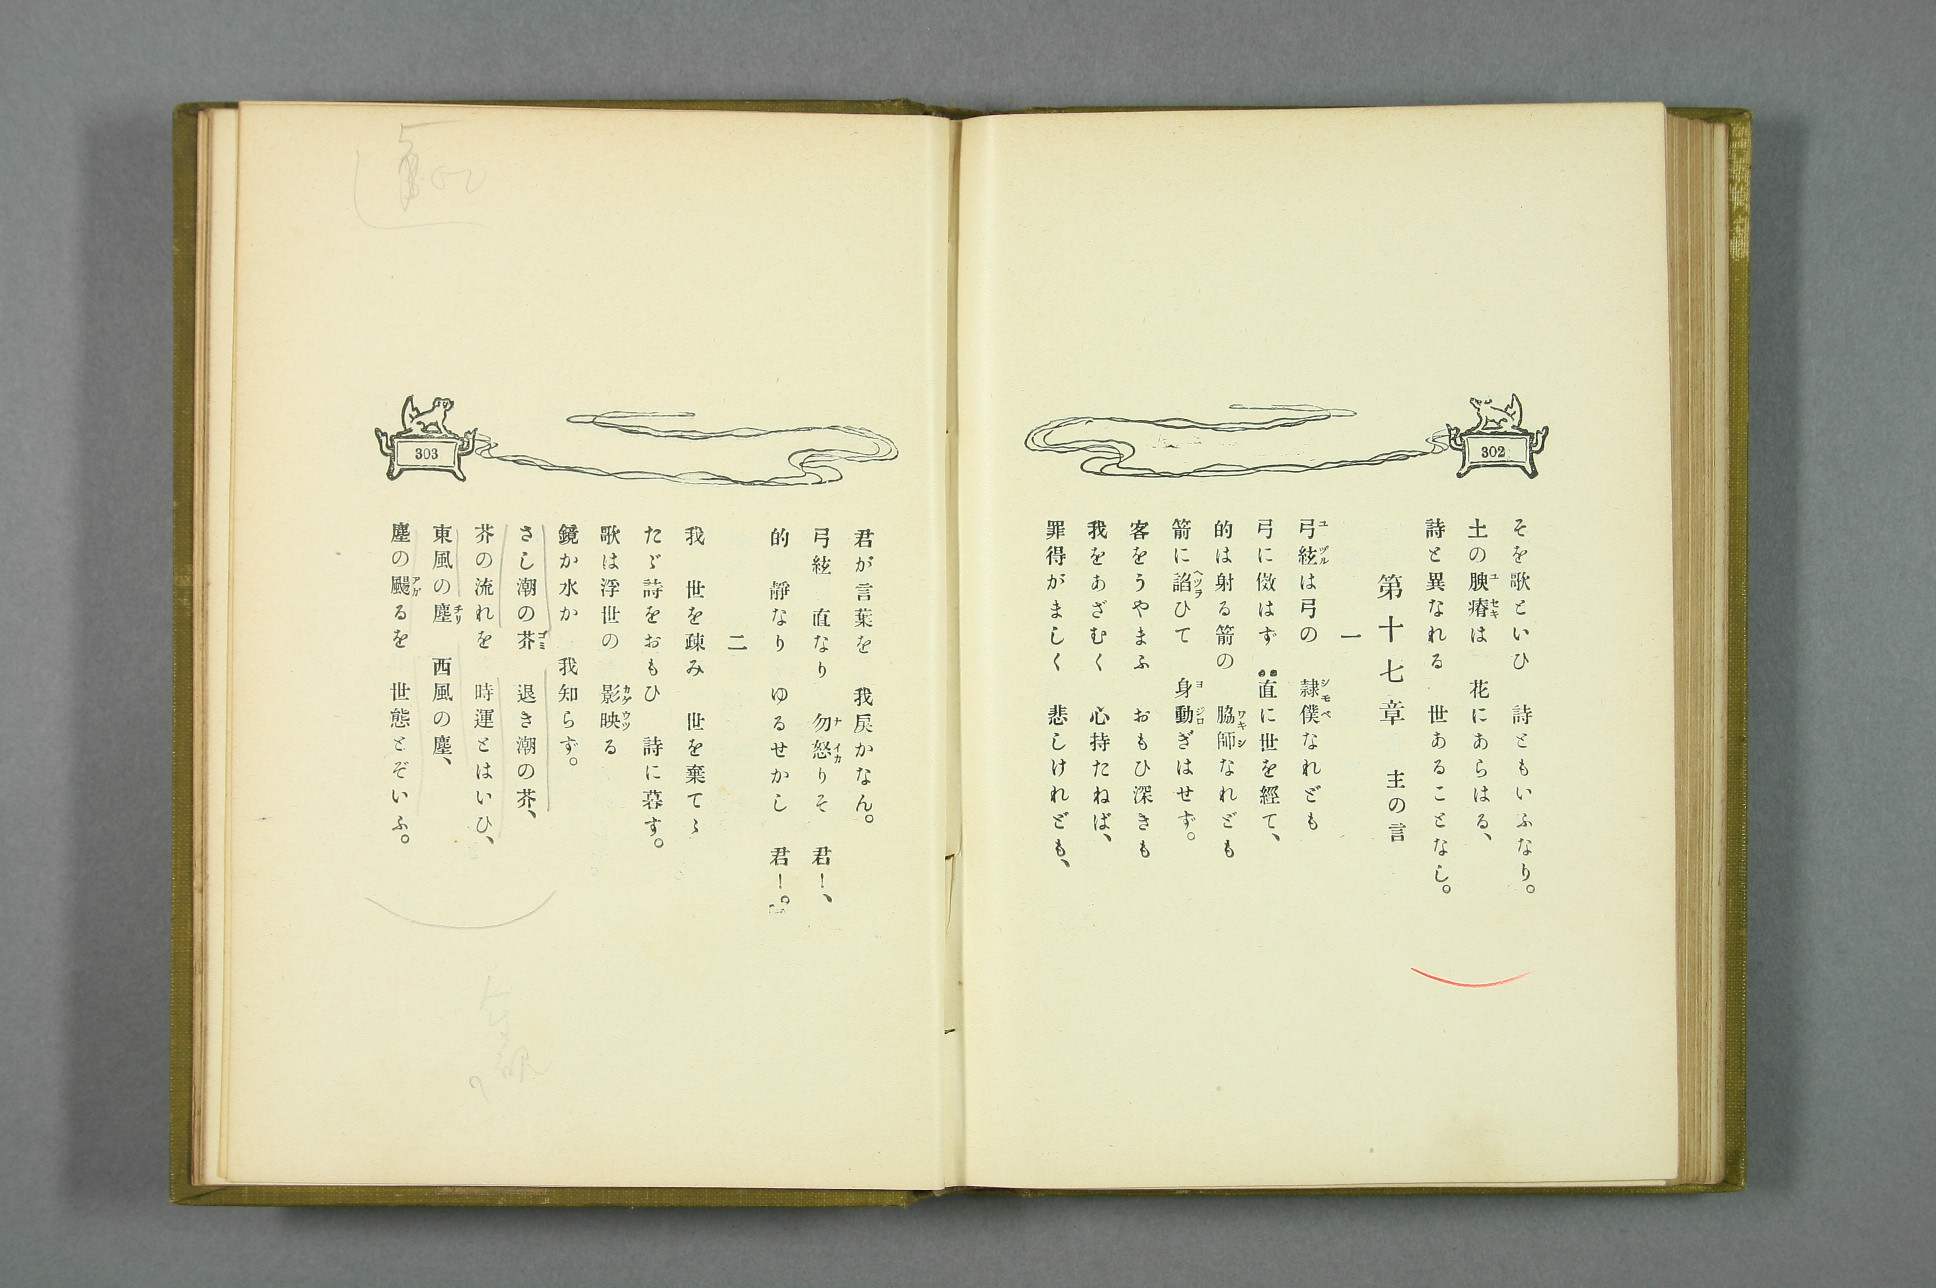 302
そを歌といひ　詩ともいふなり。
土の腴瘠は　花にあらはる、
詩と異なれる　世あることなし。
第十七章　主の言
一
弓絃は弓の　隷僕なれども
弓に傚はず　直に世を經て、
的は射る箭の　脇師なれども
箭に諂ひて　身動ぎはせず。
客をうやまふ　おもひ深きも
我をあざむく　心持たねば、
罪得がましく　悲しけれども、
303
君が言葉を　我戻かなん。
弓絃　直なり　勿怒りそ　君！、
的　靜なり　ゆるせかし　君！。
二
我　世を疎み　世を棄てゝ
たゞ詩をおもひ　詩に暮す。
歌は浮世の　影映る
鏡か水か　我知らず。
さし潮の芥　退き潮の芥、
芥の流れを　時運とはいひ、
東風の塵　西風の塵、
塵の颺るを　世態とぞいふ。